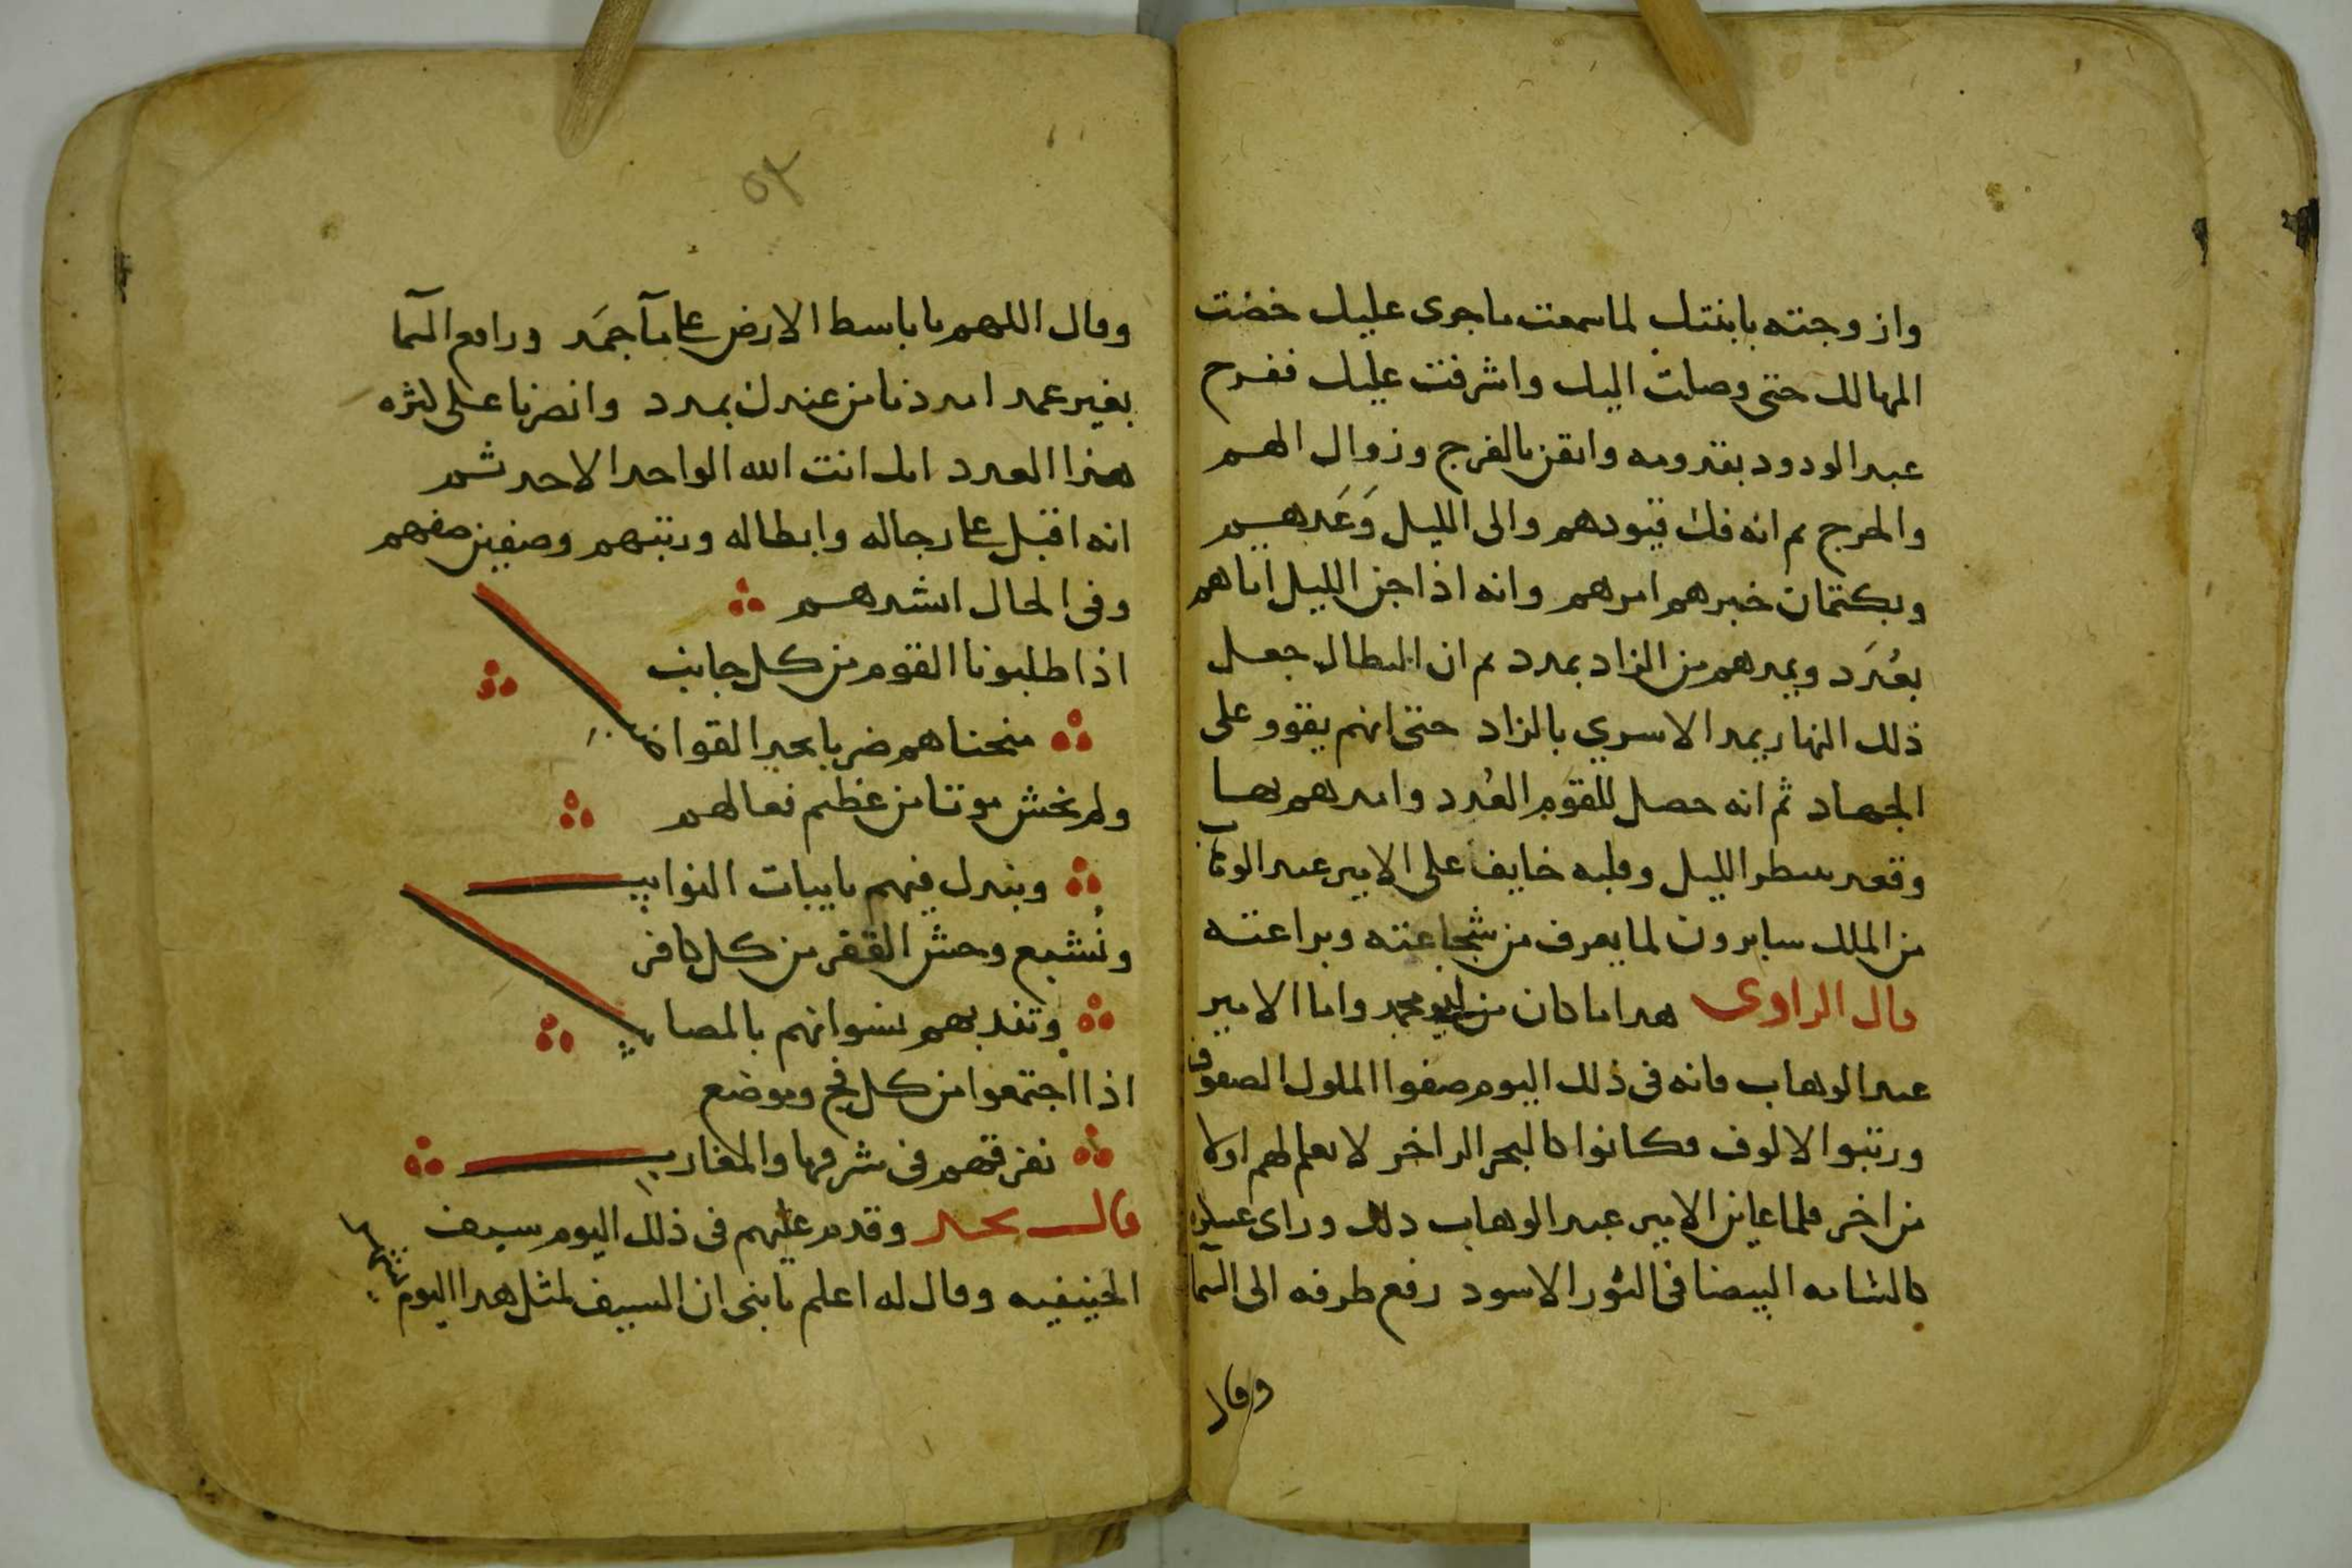 وازوجته بابنتك لما سمعت ما جرى عليك خضت
المهالك حتى وصلت اليك واشرفت عليك ففرح
عبد الودود بقدومه وايقن بالفرج وزوال الهم
والحرج ثم انه فك قيودهم والى الليل وَعَدهم
وبكتمان خبرهم امرهم وانه اذا جن الليل اتاهم
بعُدَد ويمدهم من الزاد بمدد ثم ان البطال جعل
ذلك النهار يمد الاسرى بالزاد حتى انهم يقوو على
الجهاد ثم انه حصل للقوم العُدد وامدهم بها
وقعد ينتظر الليل وقلبه خايف على الامير عبد الوهاب
من الملك سابرون لما يعرف من شجاعته وبراعته
قال الراوى هدا ما كان من ابو محمد واما الامير
عبد الوهاب فانه فى ذلك اليوم صفوا الملوك الصفوف
ورتبوا الالوف فكانوا كالبحر الزاخر لا يعلم لهم اولا
من اخر فلما عاين الامير عبد الوهاب دلك وراى عسكره
كالشامه البيضا فى الثور الاسود رفع طرفه الى السما
وقال
٥٢
وقال اللهم يا باسط الارض على مآ جمَد ورافع السما
بغير عمد امددنا من عندك بمدد وانصرنا على كثره
هذا العدد انك انت الله الواحد الاحد ثم
انه اقبل على رجاله وابطاله ورتبهم وصفين صفهم
وفى الحال انشدهم
اذا طلبونا القوم من كل جانب
منحناهم ضربا بحد القواضب
ولم نخش موتا من عظيم فعالهم
وبنزل فيهم نايبات النوايب
ونُشبع وحش القفر من كل كافر
وتندبهم نسوانهم بالمصايب
اذا اجتمعوا من كل فج وموضع
نفرقهم فى شرقها والمغارب
قال نجد وقدم عليهم فى ذلك اليوم سيف
الحنيفيه وقال له اعلم يا بنى ان السيف لمثل هدا اليوم